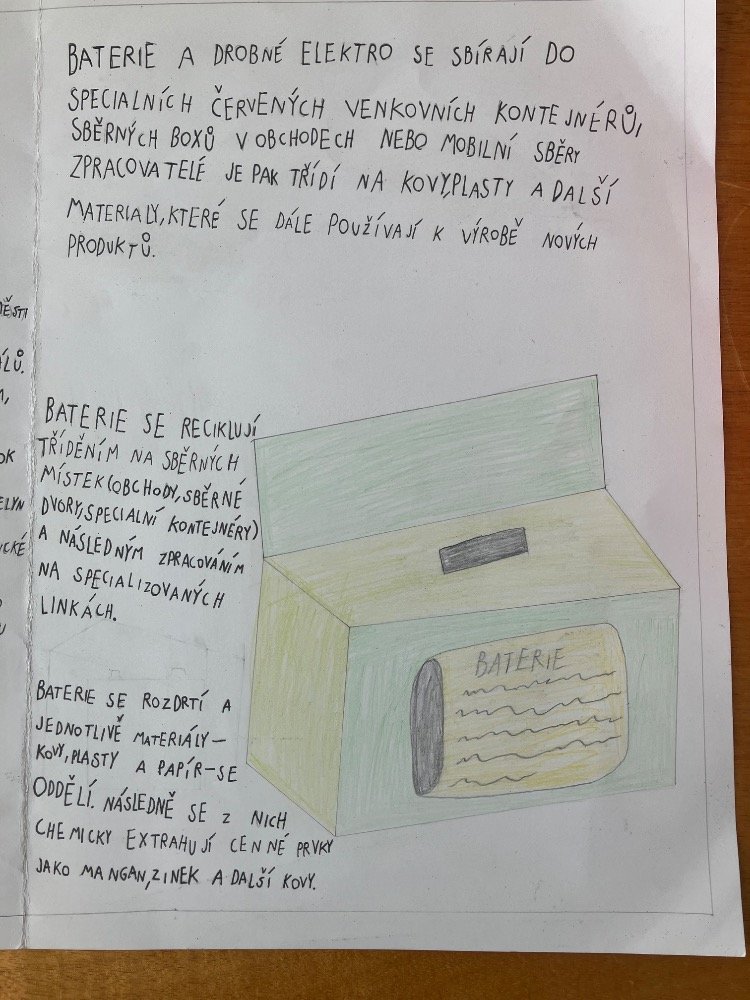 BATERIE A DROBNÉ ELEKTRO SE SBÍRAJÍ DO
SPECIALNÍCH ČERVENÝCH VENKOVNÍCH KONTEJNÉRŮ,
SBĚRNÝCH BOXŮ V OBCHODECH NEBO MOBILNÍ SBĚRY
ZPRACOVATELÉ JE PAK TŘÍDÍ NA KOVY,PLASTY A DALŠÍ
MATERIALY,KTERÉ SE DÁLE POUŽÍVAJÍ K VÝROBĚ NOVÝCH
PRODUKTŮ.
BATERIE SE RECIKLUJÍ
TŘÍDĚNÍM NA SBĚRNÝCH
MÍSTEK(OBCHODY,SBĚRNÉ
DVORY,SPECIALNÍ KONTEJNÉRY)
A NÁSLEDNÝM ZPRACOVÁNÍM
NA SPECIALIZOVANÝCH
LINKÁCH.
BATERIE
BATERIE SE ROZDRTÍ A
JEDNOTLIVĚ MATERIÁLY-
KOVY,PLASTY A PAPÍR-SE
ODDĚLÍ. NÁSLEDNĚ SE Z NICH
CHEMICKY EXTRAHUJÍ CENNÉ PRVKY
JAKO MANGAN,ZINEK A DALŠÍ KOVY.